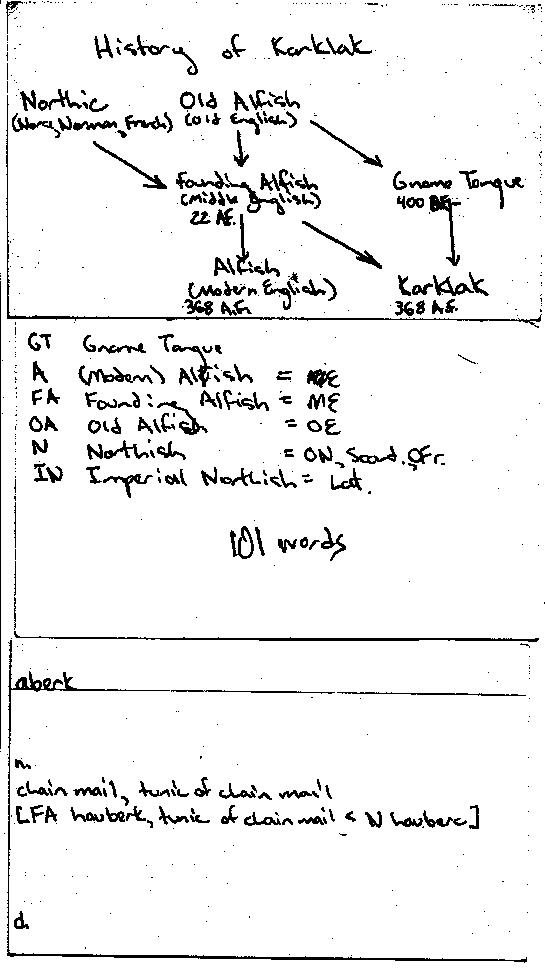 History of Karklak
Northic
(Norse, Norman, French)
Old Alfish
(Old English)
Founding Alfish
(Middle English)
22 A.E.
Gnome Tongue
400
Alfish
(Modern English*)
368 A.E.
Karklak
368 A.E.
GT Gnome Tongue
A (Modern) Alfish =
FA Founding Alfish = ME
OA Old Alfish = OE
N Northish = ON, Scand., OFr.
IN Imperial Northish = Lat.
101 words
aberk
n.
chain mail, tunic of chain mail
[FA hauberk, tunic of chain mail < N hauberc]
d.